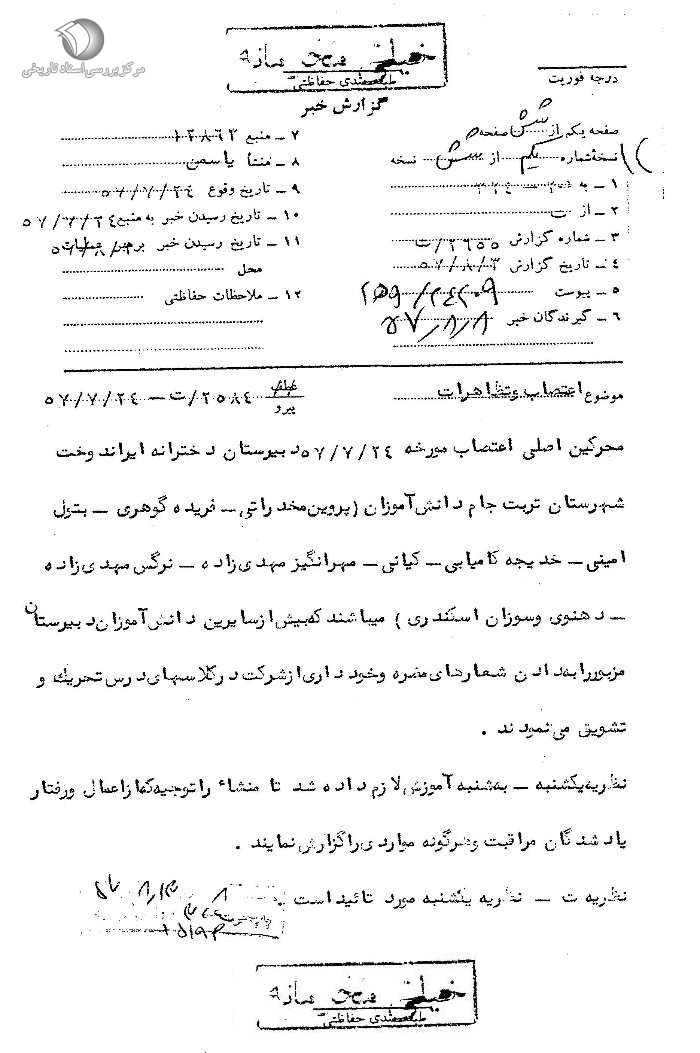 مرکز بررسی اسناد تاریخی
خیلی محرمانه
طبقه‌بندی حفاظتی
گزارش خبر
درجه فوریت
صفحه یکم از شش صفحه
نسخه شماره یکم از شش نسخه
۱ ـ به
۲ ـ از ت
۳ ـ شماره گزارش ۲۶۵۵/ت
۴ ـ تاریخ گزارش ۵۷/۸/۳
۵ ـ پیوست
۶ ـ گیرندگان خبر
۵۷/۸/۸
۷ ـ منبع ۱۲۸۶۲
۸ ـ منشأ یاسمن
۹ ـ تاریخ وقوع ۵۷/۷/۲۴
۱۰ ـ تاریخ رسیدن خبر به منبع ۵۷/۷/۲۴
۱۱ ـ تاریخ رسیدن خبر به رهبر عملیات
محل
۱۲ ـ ملاحظات حفاظتی
موضوع اعتصاب و تظاهرات
پیرو ۲۵۸۴/ت ـ ۵۷/۷/۲۴
محرکین اصلی اعتصاب مورخه ۵۷/۷/۲۴ دبیرستان دخترانه ایراندوخت
شهرستان تربت جام دانش‌آموزان (پروین مخدراتی ـ فریده گوهری ـ بتول
امینی ـ خدیجه کامیابی ـ کیانی ـ مهرانگیز مهدی‌زاده ـ نرگس مهدی‌زاده
ـ دهنوی وسوزان اسکندری) میباشند که بیش از سایرین دانش‌آموزان دبیرستان
مزبور را به دادن شعارهای مضره وخودداری از شرکت در کلاسهای درس تحریک و
تشویق می‌نمودند .
نظریه یکشنبه ـ به شنبه آموزش لازم داده شد تا منشاء را توجیه که از اعمال ورفتار
یادشدگان مراقبت وهرگونه مواردی را گزارش نمایند .
نظریه ت ـ نظریه یکشنبه مورد تائید است
خیلی محرمانه
طبقه‌بندی حفاظتی